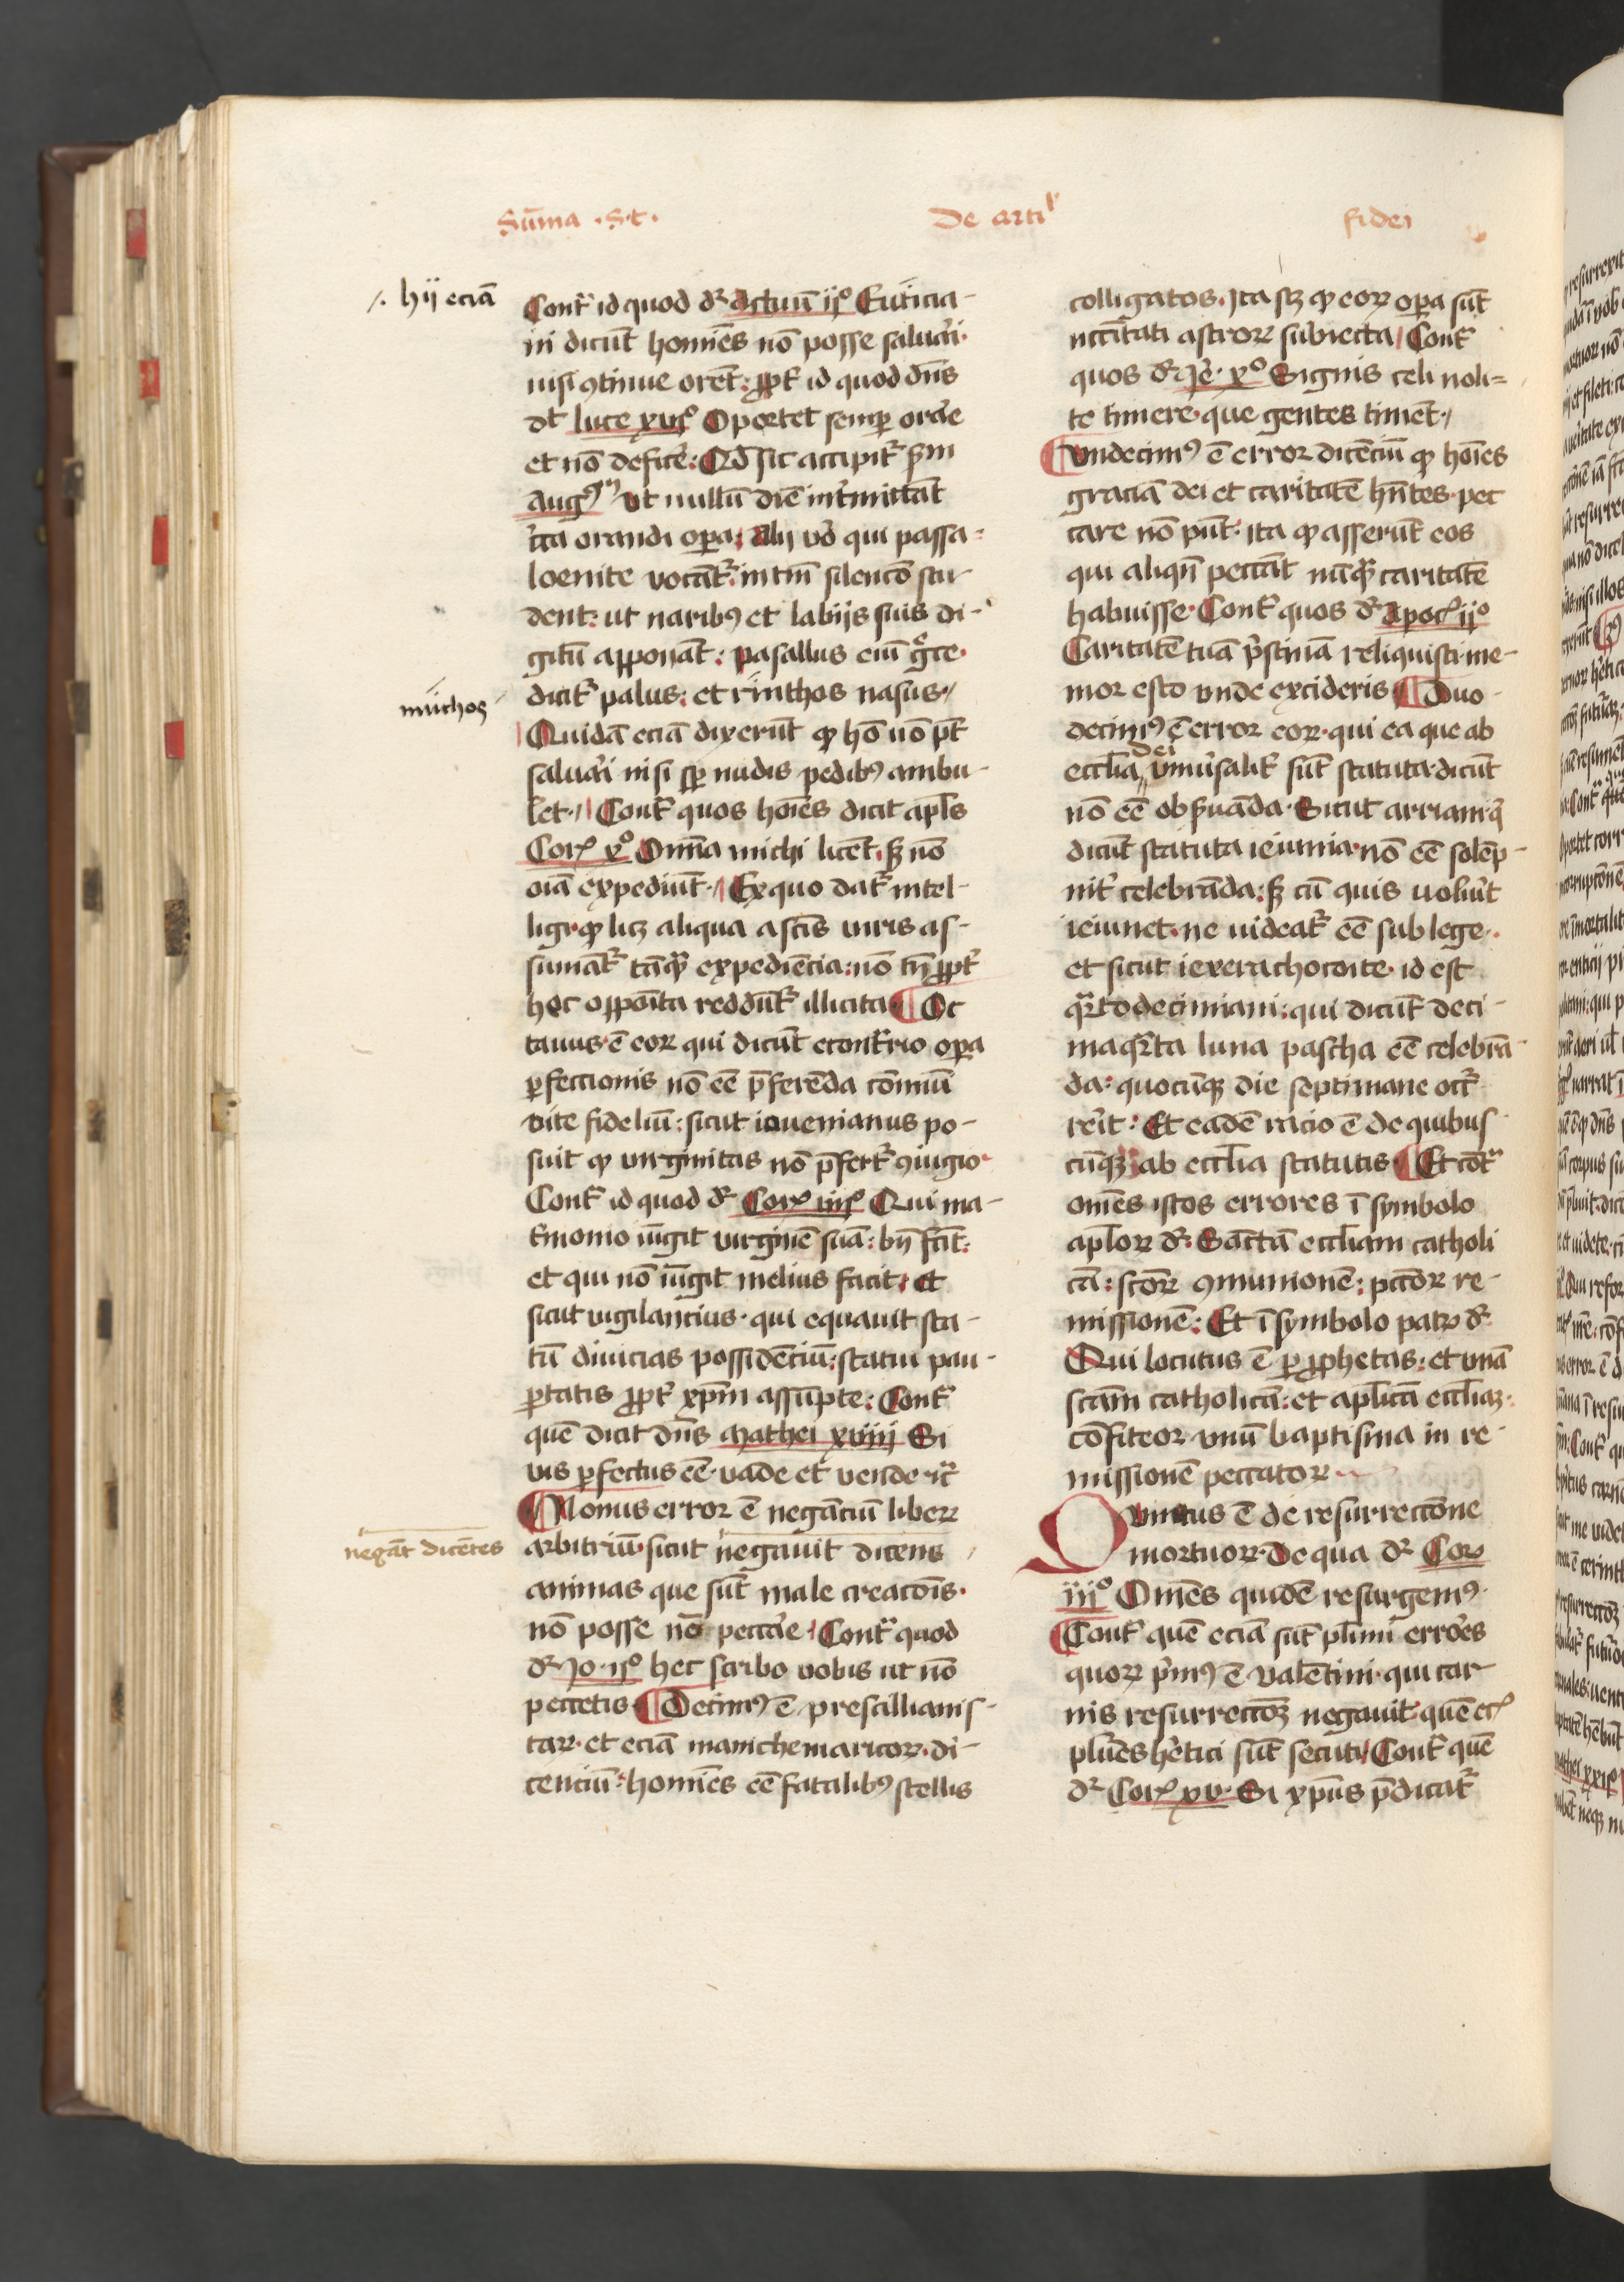 Sūma · S · t ·
De arti^l
fidei
/. hij eciā
Cont̄ id quod dr̄ Actuum ijº Euticia-
ni dicūt homīes nō posse saluari
nisi ꝯtinue orēt: ꝓpt̄ id quod dn̄s
dt̄ luce xviijº Oportet semꝑ orāe
et nō deficē: Qđ sic accipit̄ ẜm
Augꝰ ut nullū diē int̄mittāt
c̄ta orandi oꝑa. Alij ṽo qui passa-
loenite vocāt̄ intm̄ silencō stu-
dent: ut naribꝰ et labijs suis di-
gitū apponāt: pasallus eī g̊ce
dicit̄ palus: et rinthos nasus
mūchos
Quidā eciā dixerūt ꝙ hō nō pt̄
saluari nisi sꝑ nudis pedibꝰ ambu-
let. Cont̄ quos hoīes dicit apl̄s
Corꝭ xº Om̄ia michi licēt, sꝫ nō
oīa expediūt. Ex quo dat̄ intel-
ligi ꝙ licꝫ aliqua a sc̄īs viris as-
sumāt̄ tāꝙ̄ expediēcia: nō tn̄ ꝓpt̄
hoc opposita reddūt̄ illicita. Oc
tauus ē eoꝝ qui dicūt econt̄rio oꝑa
ꝑfectionis nō eē p̄ferēda cōmūi
vite fideliū: sicut iouenianus po-
suit ꝙ virginitas nō p̄fert̄ ꝯiugio
Cont̄ id quod dr̄ Corꝭ iiijº Qui ma-
t̄monio iūgit virginē suā: bn̄ fc̄it:
et qui nō iūgit melius facit. et
sicut vigilancius qui equauit sta-
tū diuicias possidēciū: statui pau-
ꝑtatis ꝓpt̄ xp̄m assūpte: Cont̄
quē dicit dn̄s Mathei xviiij Si
vis ꝑfectus eē vade et vende ⁊c̄
Nonus error ē negāciū liberꝝ
negāt dicētes
arbitriū. sicut negauit dicens
animas que sūt male creacōis
nō posse nō peccāe. Cont̄ quod
dr̄ Jo· ijº hec scribo vobis ut nō
peccetis. Decimꝰ ē prescillianis-
taꝝ. et eciā manichemaricoꝝ. di-
cenciū: homīes eē fatalibꝰ stellis
colligatos. Ita sꝫ ꝙ eoꝝ oꝑa sūt
nccītati astroꝝ subiecta. Cont̄
quos dr̄ Je· xº Signis celi noli=
te timere que gentes timēt.
Undecimꝰ ē error dicēciū ꝙ hoīes
graciā dei et caritatē hn̄tes pec
care nō pūt. ita ꝙ asserūt eos
qui aliqn̄ peccāt nūꝙ̄ caritatē
habuisse. Cont̄ quos dr̄ Apocꝭ ijº
Caritatē tuā p̄stinā reliquisti. me-
mor esto vnde excideris. Duo-
decimꝰ ē error eoꝝ. qui ea que ab
eccl̄ia dei vniūsalit̄ sūt statuta dicūt
nō eē obẜuāda. Sicut arriani q̄
dicūt statuta ieiunia nō eē solēp-
nit̄ celebrāda: sꝫ cū quis voluīt
ieiunet. ne videat̄ eē sub lege.
et sicut iexerachocoite. id est
quartodecimiani: qui dicūt deci-
maqarta luna pascha eē celebrā-
da: quocūqꝫ die septimane occr̄
reīt: Et eadē racio ē de quibus-
cūqꝫ ab eccl̄ia statutis. Et cōt̄
om̄es istos errores ī symbolo
apl̄oꝝ dr̄. Sāctā eccl̄iam catholi
cā: sc̄oꝝ ꝯmunionē: pcc̄oꝝ re-
missionē: Et ī symbolo patꝝ dr̄
Qui locutus ē ꝑ ꝓphetas: et vnā
sc̄am catholicā: et apl̄icā eccl̄iaꝫ
cōfiteor vnū baptisma in re-
missionē peccatoꝝ
Quintus ē de resurrectōne
mortuoꝝ. De qua dr̄ Corꝭ
iijº Om̄es quidē resurgemꝰ.
Cont̄ quē eciā sūt pl̄imi errōes
quoꝝ p̄mꝰ ē valētini. qui car
nis resurrectōꝫ negauit. quē ec̄
plūes h̄etici sūt secuti. Cont̄ quē
dr̄ Corꝭ xv· Si xp̄us p̄dicat̄